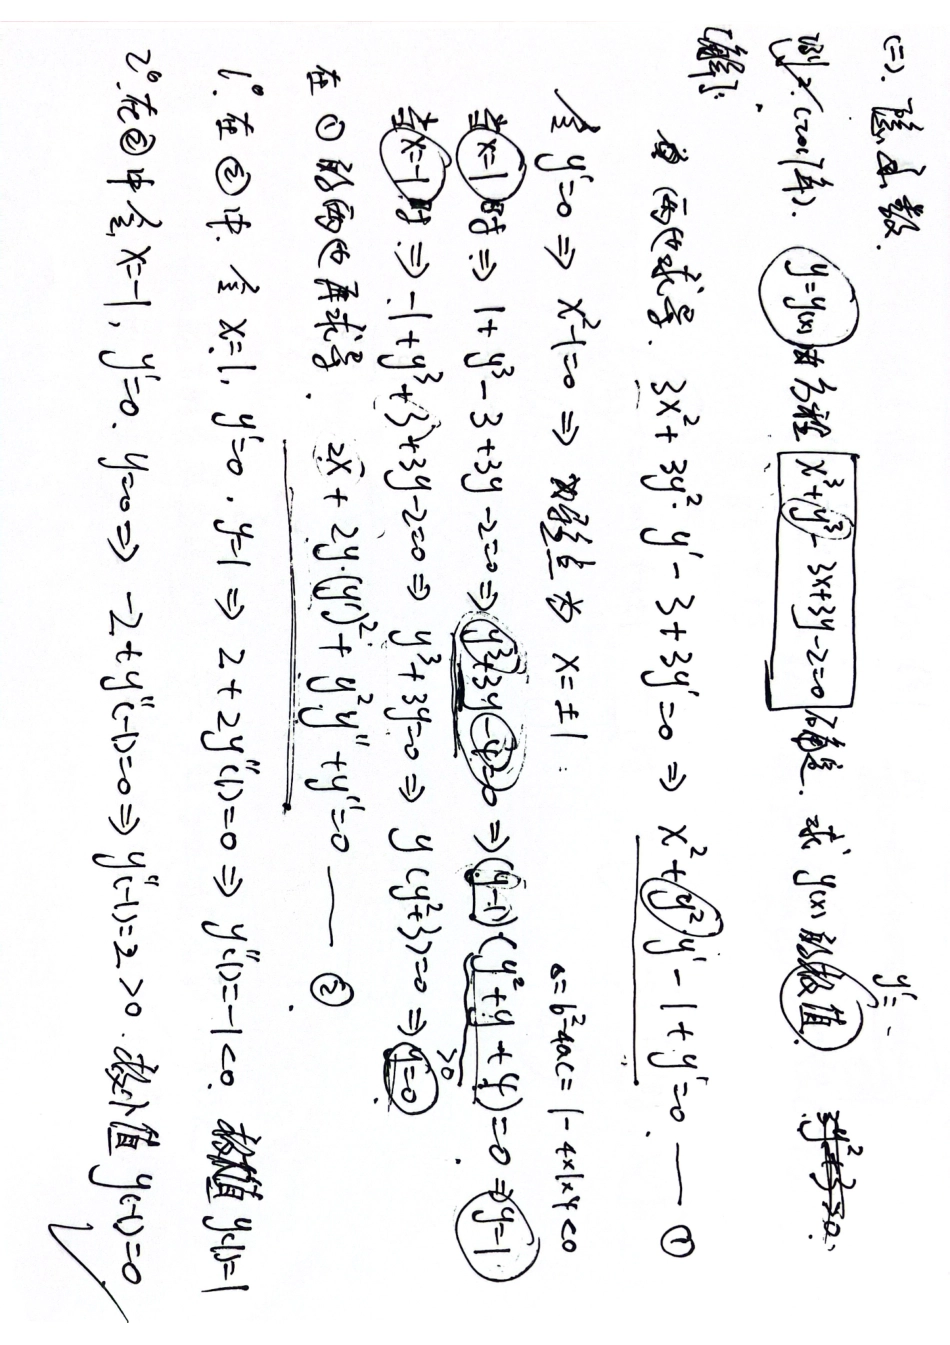 (二). 隐函数.
例2. (2017年). y=y(x)由方程 x³+y³-3x+3y-2=0 确定. 求 y(x)的极值.
y'=
[解]:
两边求导. 3x²+3y²·y'-3+3y'=0 ⇒ x²+y²y'-1+y'=0. —— ①
令 y'=0 ⇒ x²-1=0 ⇒ 为 x=±1
Δ=b²-4ac=1-4×1×4<0
当x=1时 ⇒ 1+y³-3+3y-2=0 ⇒ y³+3y-4=0 ⇒ (y-1)(y²+y+4)=0 ⇒ y=1
>0
当x=-1时 ⇒ -1+y³+3+3y-2=0 ⇒ y³+3y=0 ⇒ y(y²+3)=0 ⇒ y=0
在①的两边再求导. 2x+2y·(y')²+y²y''+y''=0 —— ②
1°. 在②中. 令 x=1, y'=0. y=1 ⇒ 2+2y''(1)=0 ⇒ y''(1)=-1<0. 极大值 y(1)=1
2°. 在②中令 x=-1, y'=0. y=0 ⇒ -2+y''(-1)=0 ⇒ y''(-1)=2>0. 极小值 y(-1)=0